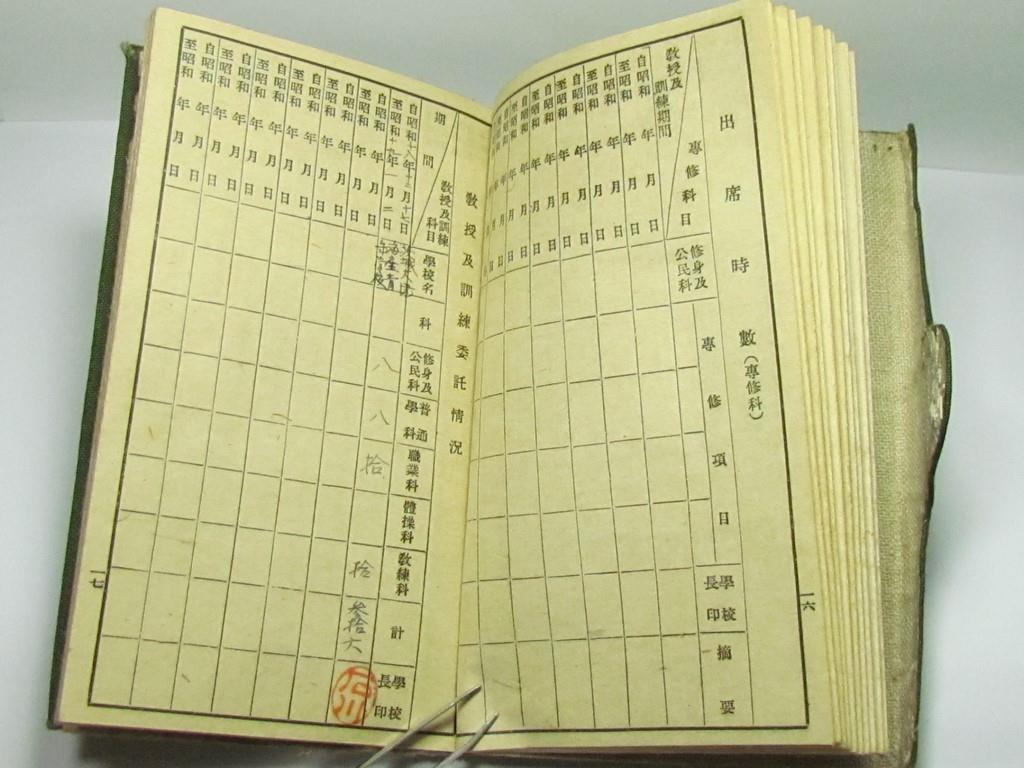 出席時數（專修科）
專修科目
教授及訓練期間
修身及公民科
專修項目
學校長印
摘要
自昭和 年 月 日
至昭和 年 月 日
自昭和 年 月 日
至昭和 年 月 日
自昭和 年 月 日
至昭和 年 月 日
自昭和 年 月 日
至昭和 年 月 日
一六
教授及訓練委託情況
教授及訓練科目
期間
學校名
科
修身及公民科
普通學科
職業科
體操科
教練科
計
學校長印
自昭和十八年十二月十七日
至昭和十九年一月二日
八
八
拾
拾
參拾六
石川
自昭和 年 月 日
至昭和 年 月 日
自昭和 年 月 日
至昭和 年 月 日
自昭和 年 月 日
至昭和 年 月 日
自昭和 年 月 日
至昭和 年 月 日
自昭和 年 月 日
至昭和 年 月 日
一七